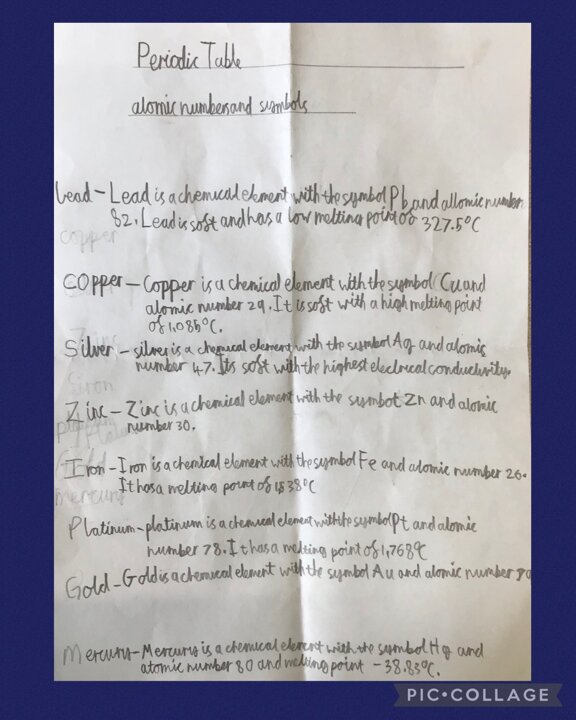 Periodic Table
atomic numbers and symbols
Lead – Lead is a chemical element with the symbol Pb and allomic number
82. Lead is soft and has a low melting point of 327.5°C
copper
Copper – Copper is a chemical element with the symbol Cu and
atomic number 29. It is soft with a high melting point
of 1,085°C.
Silver – silver is a chemical element with the symbol Ag and atomic
number 47. Its soft with the highest electrical conductivity.
Zinc – Zinc is a chemical element with the symbol Zn and atomic
number 30.
Iron – Iron is a chemical element with the symbol Fe and atomic number 26.
It has a melting point of 1538°C
mercury
Platinum – platinum is a chemical element with the symbol Pt and atomic
number 78. It has a melting point of 1,768°C
Gold – Gold is a chemical element with the symbol Au and atomic number
Mercury – Mercury is a chemical element with the symbol Hg and
atomic number 80 and melting point -38.83°C.
PIC•COLLAGE